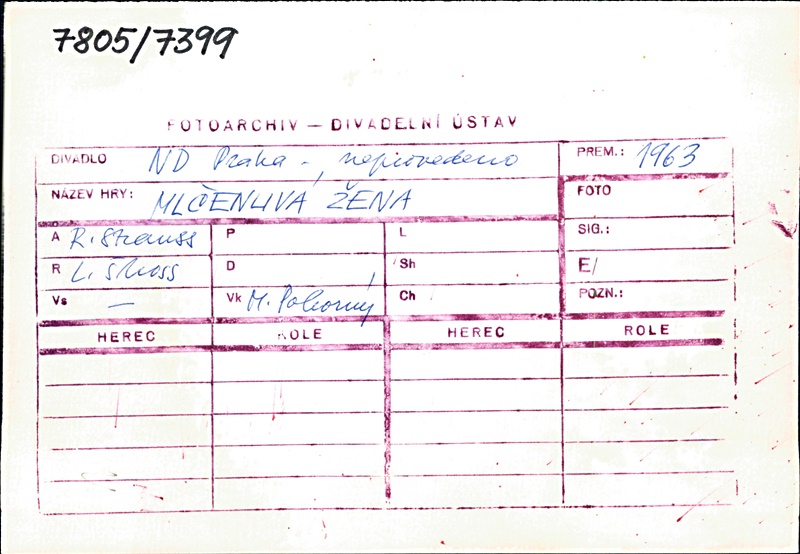 7805/7399
FOTOARCHIV — DIVADELNÍ ÚSTAV
DIVADLO ND Praha - neprovedeno PREM.: 1963
NÁZEV HRY: MLČENLIVÁ ŽENA FOTO
A R. Strauss P L SIG.:
R L. Štros D Sh E/
Vs — Vk M. Pokorný Ch POZN.:
HEREC ROLE HEREC ROLE